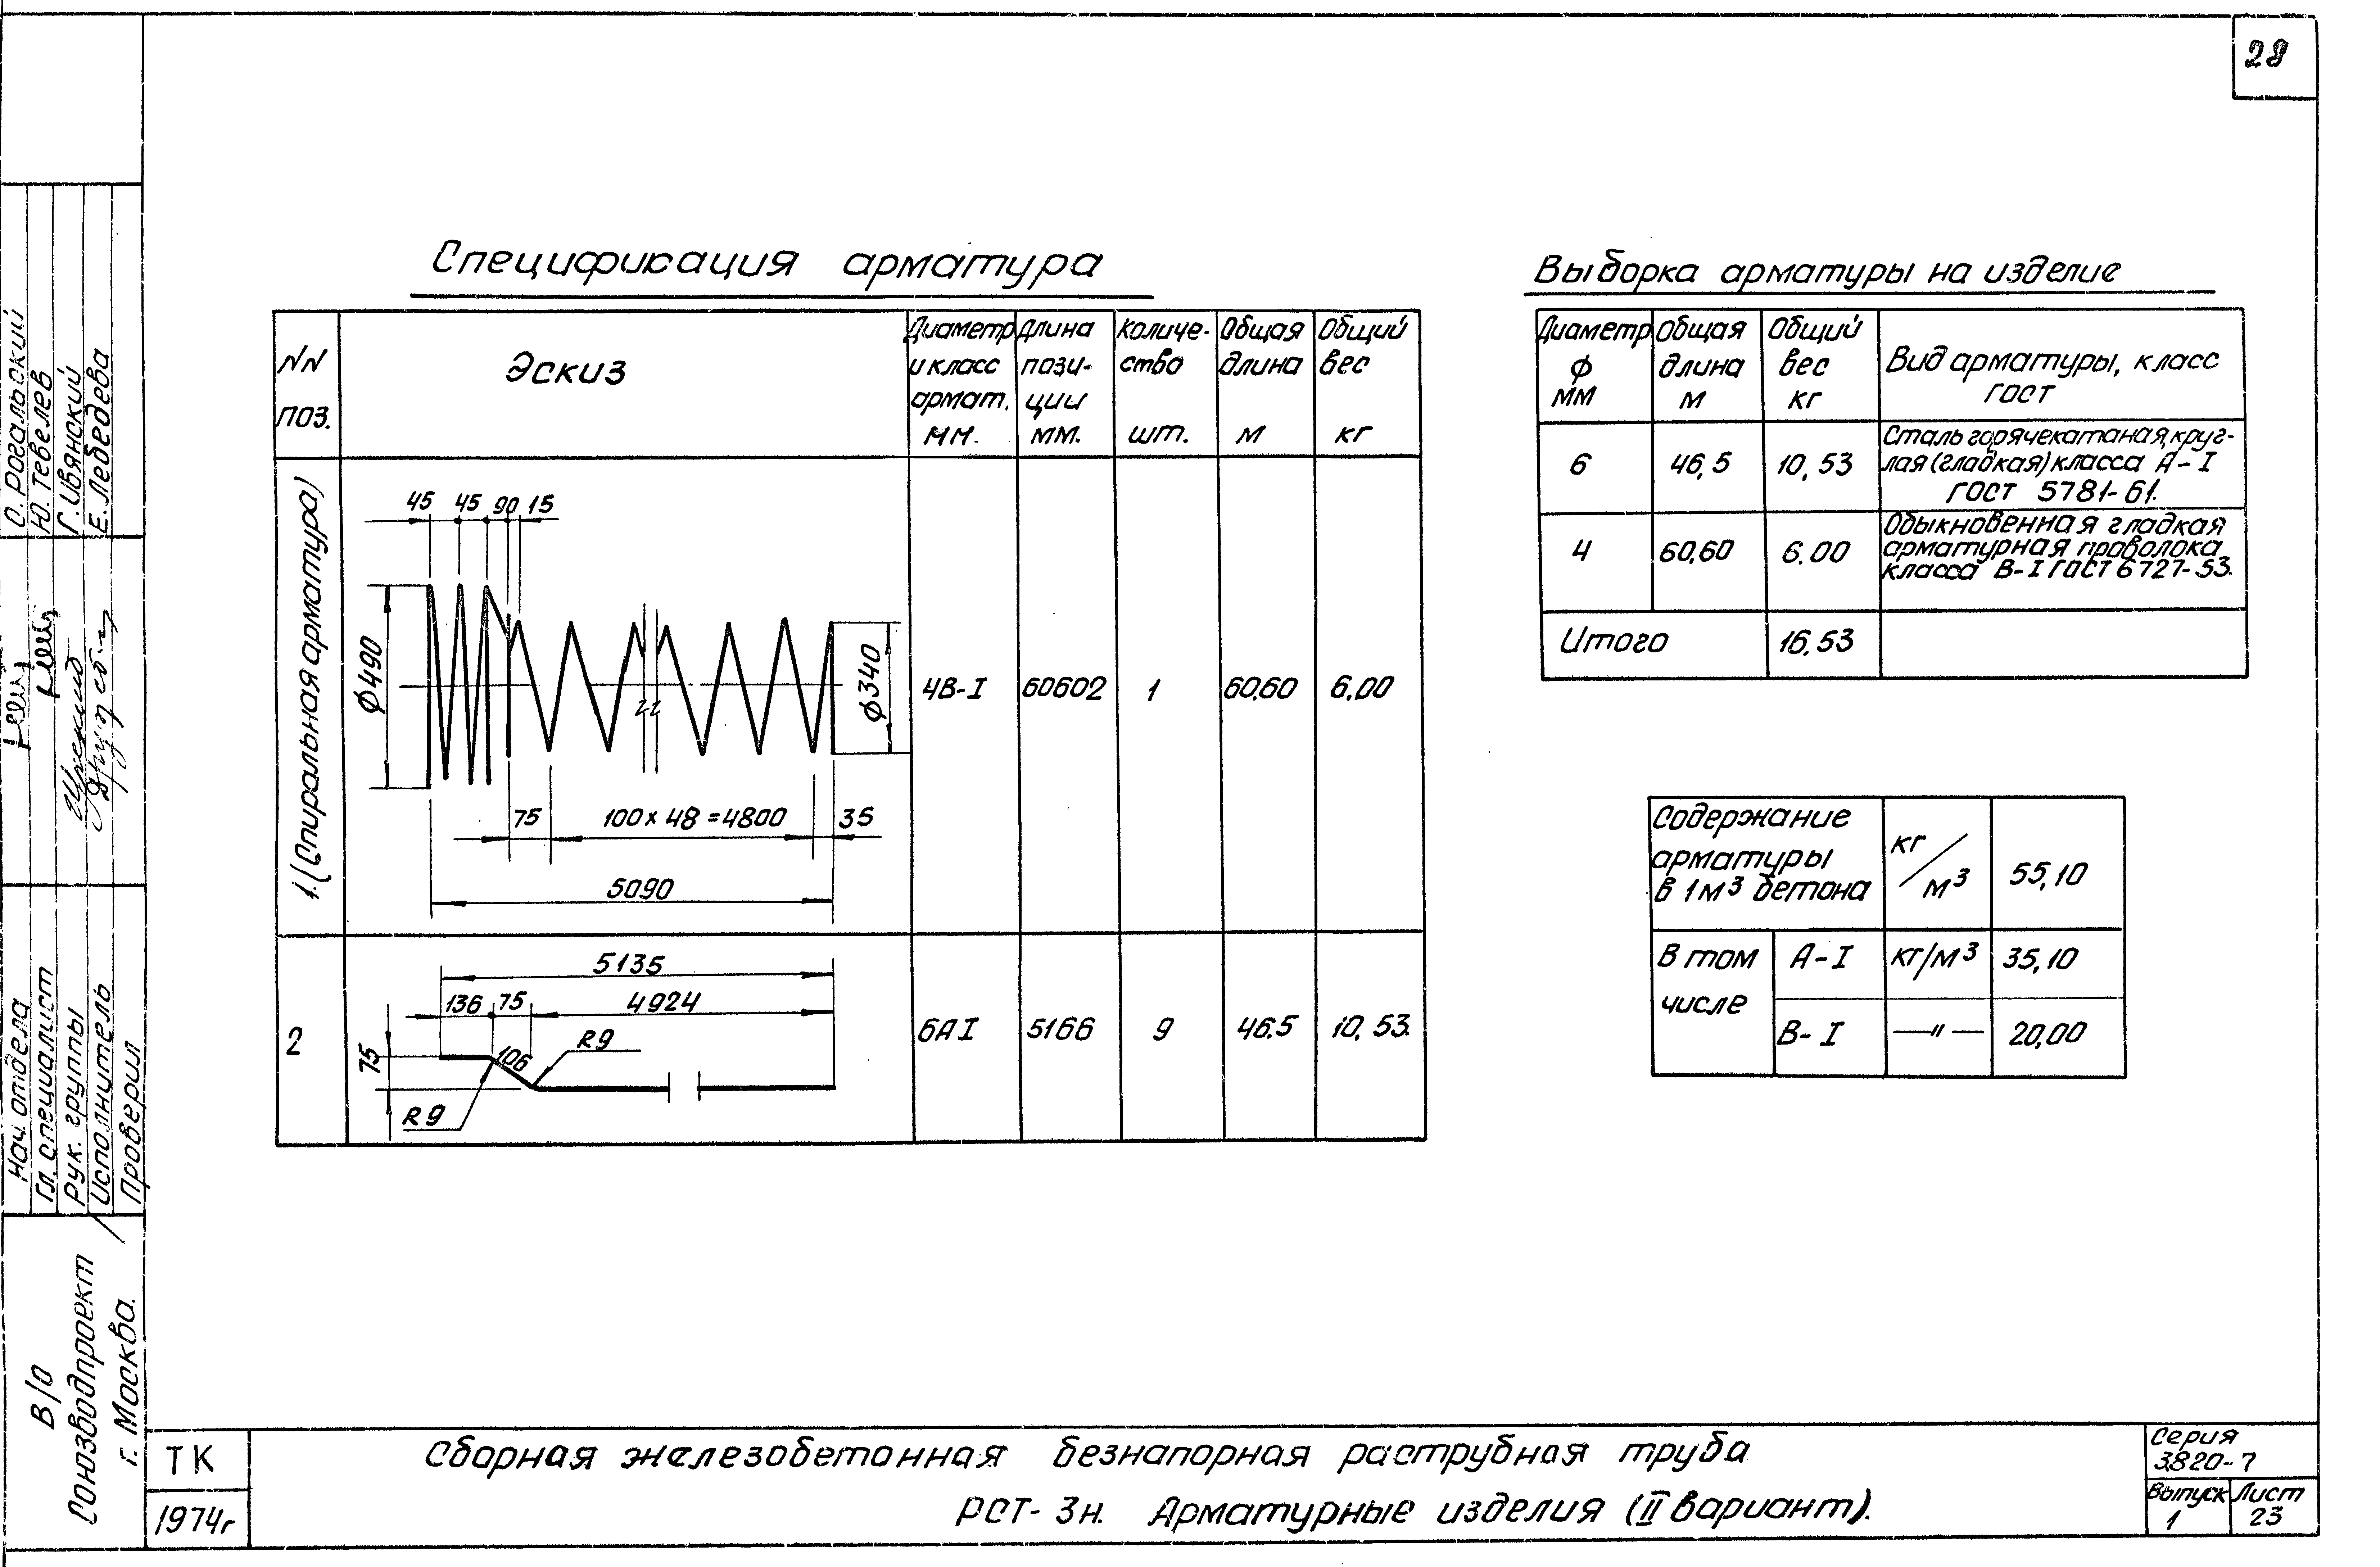 28
Спецификация арматура
NN поз.
Эскиз
Диаметр и класс армат. мм.
Длина позиции мм.
Количе-
ство
шт.
Общая длина м
Общий вес кг
1. (Спиральная арматура)
45 45 90 15
ϕ490
ϕ340
75 100 x 48 = 4800 35
5090
4В-I 60602 1 60.60 6,00
2
5135
136 75 4924
75
106
R9
R9
6АI 5166 9 46.5 10,53.
Выборка арматуры на изделие
Диаметр ϕ мм
Общая длина м
Общий вес кг
Вид арматуры, класс
ГОСТ
6 46,5 10,53
Сталь горячекатаная, круг-
лая (гладкая) класса А-I
ГОСТ 5781-61.
4 60,60 6.00
Обыкновенная гладкая
арматурная проволока
класса В-I ГОСТ 6727-53.
Итого 16,53
Содержание
арматуры
в 1м³ бетона
кг/м³ 55,10
В том
числе
А-I кг/м³ 35,10
В-I —"— 20,00
О. Рогальский
Ю. Тевелев
Г. Ивянский
Е. Лебедева
Нач. отдела
Гл. специалист
Рук. группы
Исполнитель
Проверил
В/О
Союзводпроект
г. Москва.
ТК
1974г
Сборная железобетонная безнапорная раструбная труба
РСТ-3н. Арматурные изделия (II вариант).
Серия
3.820-7
Выпуск
1
Лист
23